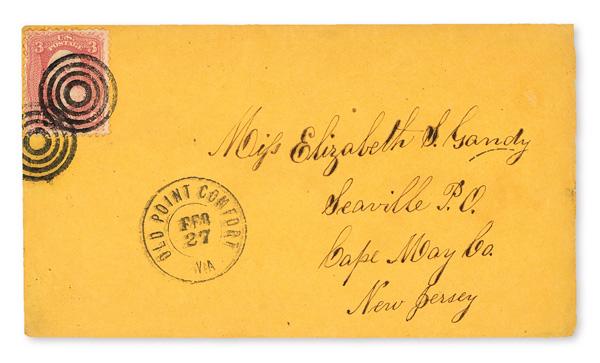 3 U.S. 3
POSTAGE
Miss Elizabeth S. Gandy
Seaville P.O.
Cape May Co.
New Jersey
OLD POINT COMFORT
FEB
27
VA